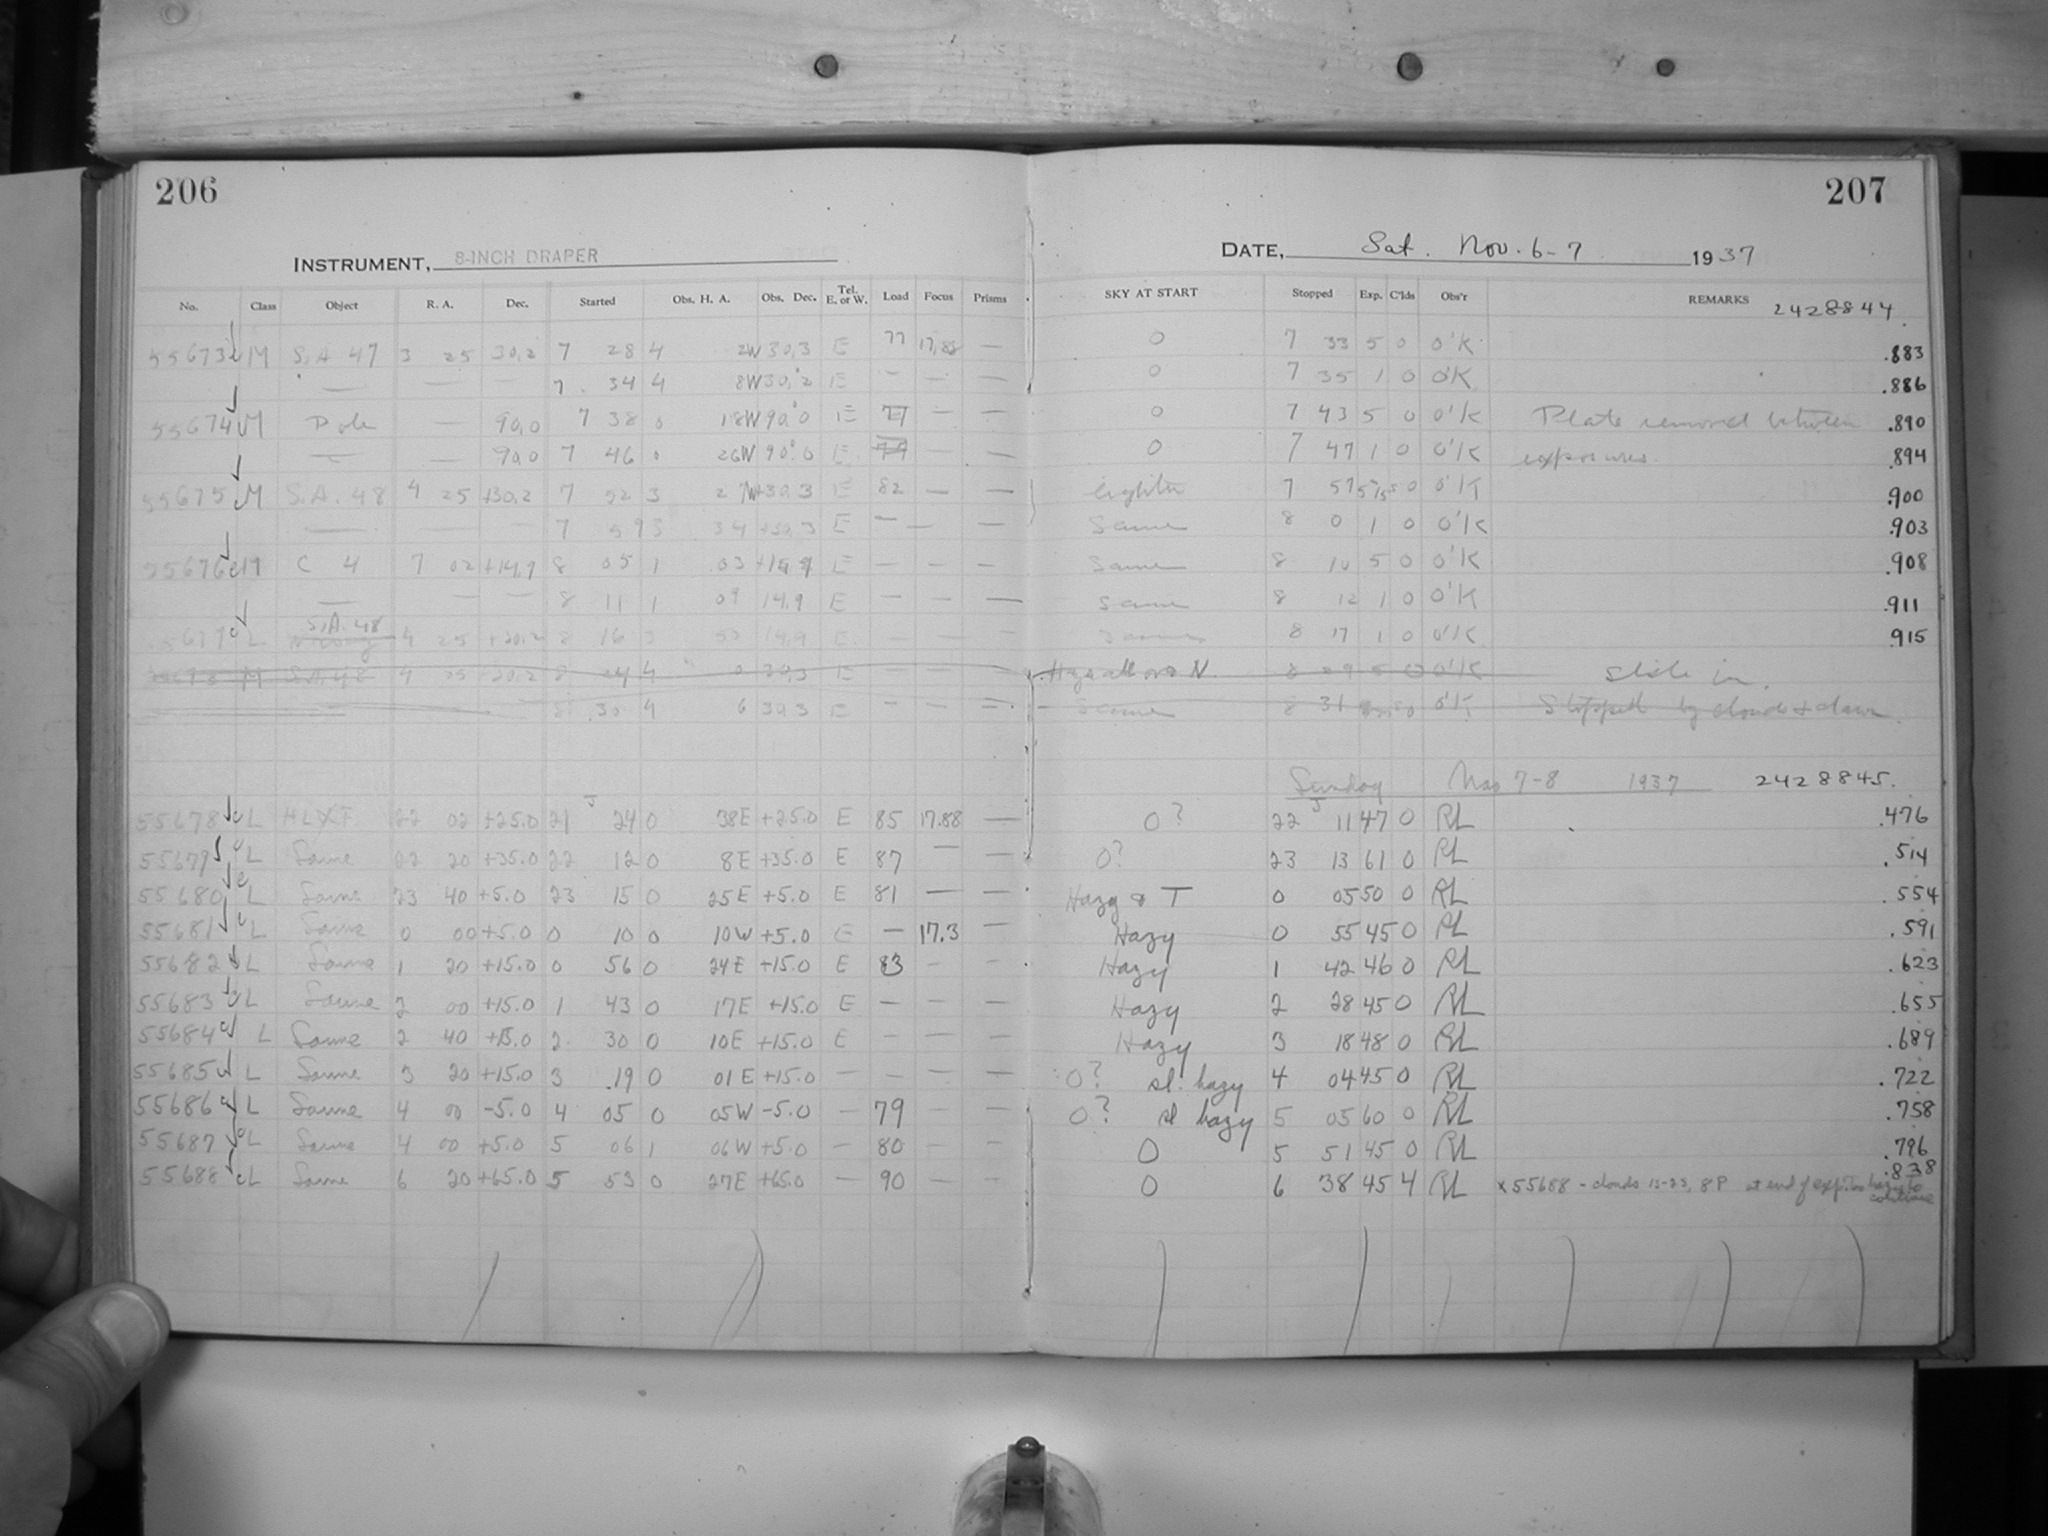 206
207
INSTRUMENT, 8-INCH DRAPER
DATE, Sat. Nov. 6-7 1937
No. Class Object R. A. Dec. Started Obs. H. A. Obs. Dec. Tel. E. or W. Load Focus Prisms SKY AT START Stopped Exp. C'lds Obs'r REMARKS 2428844.
55673 M S.A 47 3 25 30,2 7 28 4 2W 30,3 E 77 17,88 — 0 7 33 5 0 O'K .883
— — — 7 34 4 8W 30,2 E - — — 0 7 35 1 0 O'K .886
55674 M Pole — 90,0 7 38 0 18W 90,0 E 77 — — 0 7 43 5 0 O'K Plate removed between .890
— — 90,0 7 46 0 26W 90,0 E — — 0 7 47 1 0 O'K exposures. .894
55675 M S.A. 48 4 25 +30,2 7 52 3 27W +30,3 E 82 — — 7 57 0 O'K .900
— — — 7 59 3 34 +30,3 E — — — Same 8 0 1 0 O'K .903
55676 M C 4 7 02 +14,9 8 05 1 03 +14,9 E — — — Same 8 10 5 0 O'K .908
— — — 8 11 1 09 14,9 E — — — Same 8 12 1 0 O'K .911
S.A. 48
55677 L 4 25 +30,2 8 16 3 — — — 8 17 1 0 O'K .915
M S.A. 48 4 25 30,2 8 24 4 0 30,3 E — — — Haze all over N. 8 29 5 0 O'K Slide in.
8 30 4 6 30,3 E — — — Same 8 31 O'K Stopped by clouds + dawn.
Sunday Nov 7-8 1937 2428845.
55678 L 22 02 +25.0 21 24 0 38E +25.0 E 85 17.88 — 0? 22 11 47 0 RL .476
55679 L Same 22 20 +35.0 22 12 0 8E +35.0 E 87 — — 0? 23 13 61 0 RL .514
55680 L Same 23 40 +5.0 23 15 0 25E +5.0 E 81 — — Hazy & T 0 05 50 0 RL .554
55681 L Same 0 00 +5.0 0 10 0 10W +5.0 E — 17.3 — Hazy 0 55 45 0 RL .591
55682 L Same 1 20 +15.0 0 56 0 24E +15.0 E 83 - — Hazy 1 42 46 0 RL .623
55683 L Same 2 00 +15.0 1 43 0 17E +15.0 E — — — Hazy 2 28 45 0 RL .655
55684 L Same 2 40 +15.0 2 30 0 10E +15.0 E — — — Hazy 3 18 48 0 RL .689
55685 L Same 3 20 +15.0 3 19 0 01E +15.0 — — — — 0? sl. hazy 4 04 45 0 RL .722
55686 L Same 4 00 -5.0 4 05 0 05W -5.0 — 79 — — 0? sl hazy 5 05 60 0 RL .758
55687 L Same 4 00 +5.0 5 06 1 06W +5.0 — 80 — — 0 5 51 45 0 RL .796
55688 L Same 6 20 +65.0 5 53 0 27E +65.0 — 90 — — 0 6 38 45 4 RL x55688 - clouds at end of exp. Too hazy to continue .838